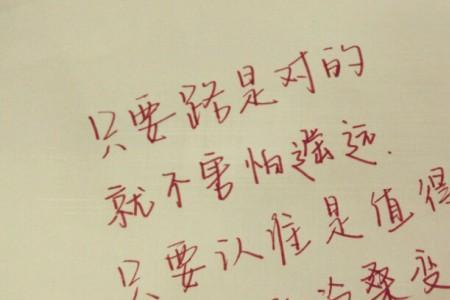 只要路是对的
就不害怕遥远.
只要认准是值得
沧桑变